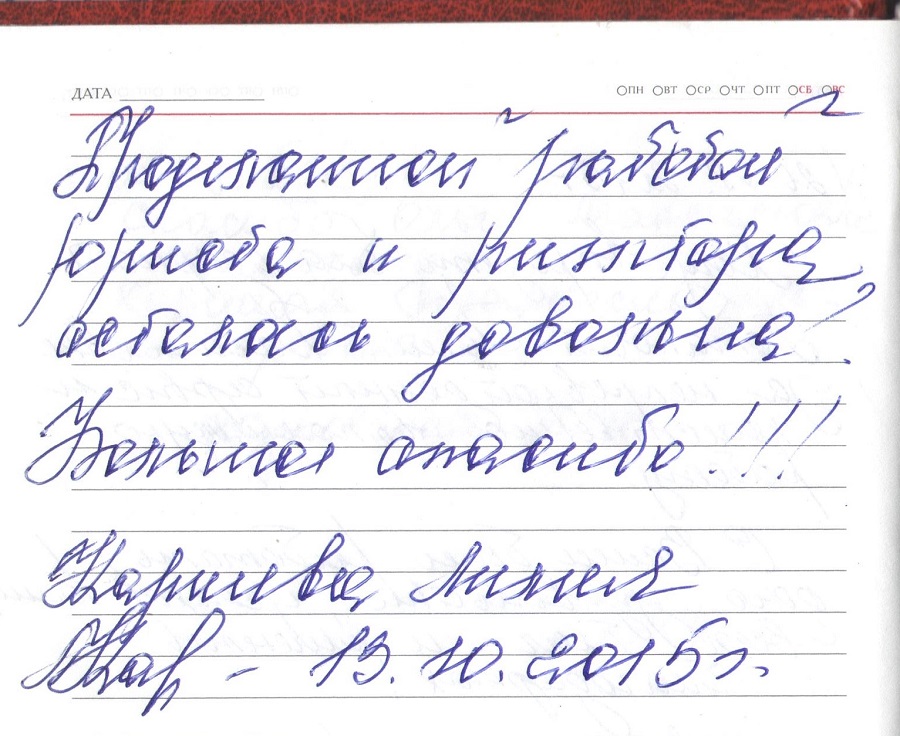 ДАТА ОПН ОВТ ОСР ОЧТ ОПТ ОСБ ОВС
Проделанной работой
юриста и риэлтора
осталась довольна!
Большое спасибо!!!
Каршева Лилия
Кар - 13.10.2015г.